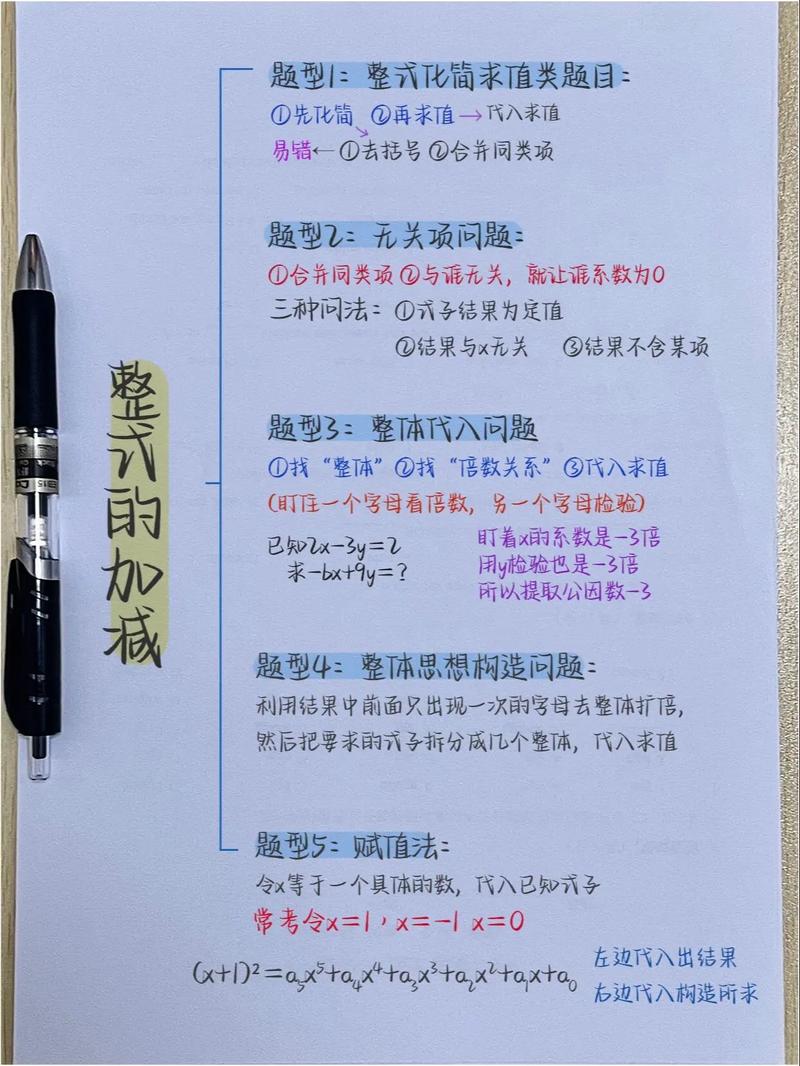 整式的加减
题型1：整式化简求值类题目：
①先化简 ②再求值→代入求值
易错←①去括号 ②合并同类项
题型2：无关项问题：
①合并同类项 ②与谁无关，就让谁系数为0
三种问法：①式子结果为定值
②结果与x无关 ③结果不含某项
题型3：整体代入问题
①找“整体” ②找“倍数关系” ③代入求值
(盯住一个字母看倍数，另一个字母检验)
已知2x-3y=2
求-6x+9y=?
盯着x的系数是-3倍
用y检验也是-3倍
所以提取公因数-3
题型4：整体思想构造问题：
利用结果中前面只出现一次的字母去整体扩倍，
然后把要求的式子拆分成几个整体，代入求值
题型5：赋值法：
令x等于一个具体的数，代入已知式子
常考令x=1，x=-1 x=0
(x+1)²=a₅x⁵+a₄x⁴+a₃x³+a₂x²+a₁x+a₀
左边代入出结果
右边代入构造所求